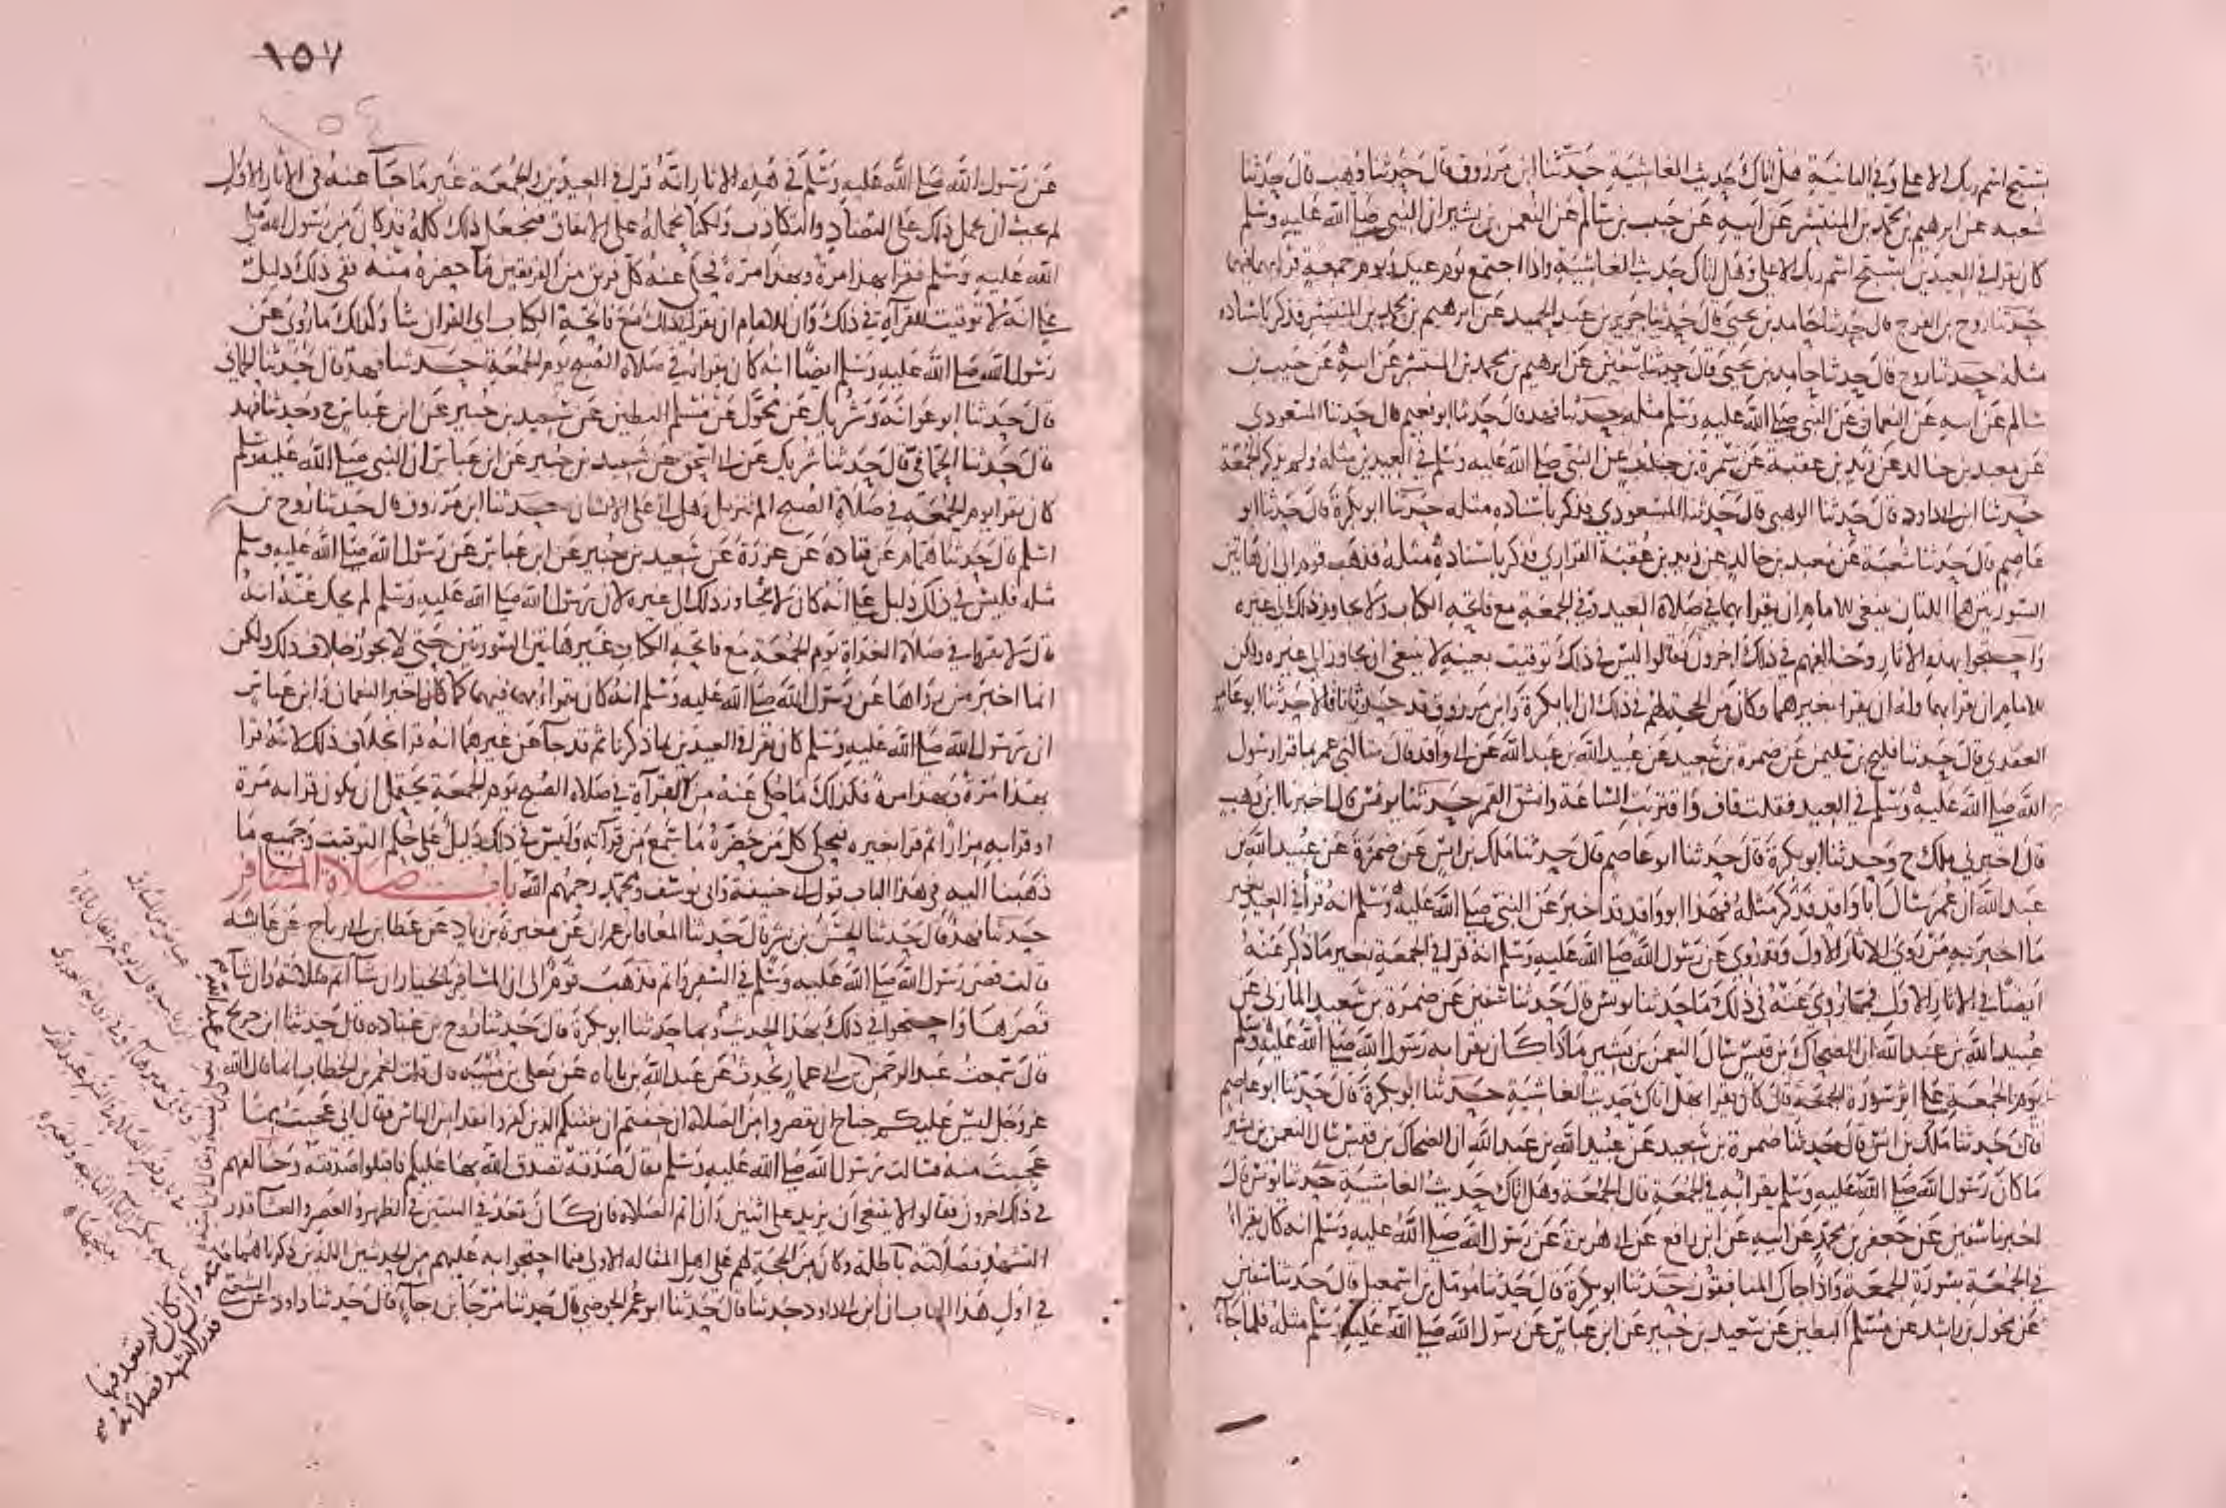 بسبح اسم ربك الاعلى وفي الثانية هل اتاك حديث الغاشية حدثنا ابن مرزوق قال حدثنا وهب قال حدثنا
شعبة عن ابرهيم بن محمد بن المنتشر عن ابيه عن حبيب بن سالم عن النعمن بن بشير ان النبي صلى الله عليه وسلم
كان يقرا في العيدين بسبح اسم ربك الاعلى وهل اتاك حديث الغاشية واذا اجتمع يوم عيد ويوم جمعة قرا بهما فيهما
حدثنا روح بن الفرج قال حدثنا حامد بن يحيى قال حدثنا جرير بن عبد الحميد عن ابرهيم بن محمد بن المنتشر فذكر باسناده
مثله حدثنا روح قال حدثنا حامد بن يحيى قال حدثنا سفين عن ابرهيم بن محمد بن المنتشر عن ابيه عن حبيب بن
سالم عن ابيه عن النعمان عن النبي صلى الله عليه وسلم مثله حدثنا فهد قال حدثنا ابو نعيم قال حدثنا المسعودي
عن معبد بن خالد عن زيد بن عقبة عن سمرة بن جندب عن النبي صلى الله عليه وسلم في العيدين مثله ولم يذكر الجمعة
حدثنا ابن ابي داود قال حدثنا الوهبي قال حدثنا المسعودي فذكر باسناده مثله حدثنا ابو بكرة قال حدثنا ابو
عاصم قال حدثنا شعبة عن معبد بن خالد عن زيد بن عقبة الفزاري فذكر باسناده مثله فذهب قوم الى ان هاتين
السورتين هما اللتان ينبغي للامام ان يقرا بهما في صلاة العيد وفي الجمعة مع فاتحة الكتاب ولا يجاوز ذلك الى غيره
واحتجوا بهذه الاثار وخالفهم في ذلك اخرون فقالوا ليس في ذلك توقيت بعينه لا ينبغي ان يجاوز الى غيره ولكن
للامام ان يقرا بهما وله ان يقرا بغيرهما وكان من الحجة لهم في ذلك ان ابا بكرة وابن مرزوق قد حدثانا قالا حدثنا ابو عامر
العقدي قال حدثنا فليح بن سليمن عن ضمرة بن سعيد عن عبيد الله بن عبد الله عن ابي واقد قال سالني عمر بما قرا رسول
الله صلى الله عليه وسلم في العيد فقلت قاف واقتربت الساعة وانشق القمر حدثنا يونس قال اخبرنا ابن وهب
قال اخبرني ملك ح وحدثنا ابو بكرة قال حدثنا ابو عاصم قال حدثنا ملك بن انس عن ضمرة عن عبيد الله بن
عبد الله ان عمر سال ابا واقد فذكر مثله فهذا ابو واقد قد اخبر عن النبي صلى الله عليه وسلم انه قرا في العيد بغير
ما اخبر به من روى الاثار الاول وقد روي عن رسول الله صلى الله عليه وسلم انه قرا في الجمعة بغير ما ذكر عنه
ايضا في الاثار الاول فمما روي عنه في ذلك ما حدثنا يونس قال حدثنا سفين عن ضمرة بن سعيد المازني عن
عبيد الله بن عبد الله ان الضحاك بن قيس سال النعمن بن بشير ماذا كان يقرا به رسول الله صلى الله عليه وسلم
يوم الجمعة على اثر سورة الجمعة قال كان يقرا بهل اتاك حديث الغاشية حدثنا ابو بكرة قال حدثنا ابو عاصم
قال حدثنا ملك بن انس قال حدثنا ضمرة بن سعيد عن عبيد الله بن عبد الله ان الضحاك بن قيس سال النعمن بن بشير
ما كان رسول الله صلى الله عليه وسلم يقرا به في الجمعة قال الجمعة وهل اتاك حديث الغاشية حدثنا يونس قال
اخبرنا سفين عن جعفر بن محمد عن ابيه عن ابن ابي رافع عن ابي هريرة عن رسول الله صلى الله عليه وسلم انه كان يقرا
في الجمعة بسورة الجمعة واذا جاك المنافقون حدثنا ابو بكرة قال حدثنا مومل بن اسمعيل قال حدثنا سفين
عن مخول بن راشد عن مسلم البطين عن سعيد بن جبير عن ابن عباس عن رسول الله صلى الله عليه وسلم مثله فلما جآء
١٥٧
عن رسول الله صلى الله عليه وسلم في هذه الاثار انه قرا في العيدين والجمعة غير ما جآ عنه في الاثار الاول
لم يجب ان يحمل ذلك على التضاد والتكاذب ولكنا نحمله على الاتفاق فنجعل ذلك كله قد كان من رسول الله صلى
الله عليه وسلم فقرا بهذا مرة وبهذا مرة فحكى عنه كل فريق من الفريقين ما حضره منه ففي ذلك دليل
على انه لا توقيت للقرآة في ذلك وان للامام ان يقرا في ذلك مع فاتحة الكتاب اي القران شا وكذلك ما روي عن
رسول الله صلى الله عليه وسلم ايضا انه كان يقرا به في صلاة الصبح يوم الجمعة حدثنا فهد قال حدثنا الحماني
قال حدثنا ابو عوانة وشريك عن مخول عن مسلم البطين عن سعيد بن جبير عن ابن عباس ح وحدثنا فهد
قال حدثنا الحماني قال حدثنا شريك عن ابي اسحق عن سعيد بن جبير عن ابن عباس ان النبي صلى الله عليه وسلم
كان يقرا يوم الجمعة في صلاة الصبح الم تنزيل وهل اتى على الانسان حدثنا ابن مرزوق قال حدثنا روح بن
اسلم قال حدثنا همام عن قتادة عن عزرة عن سعيد بن جبير عن ابن عباس عن رسول الله صلى الله عليه وسلم
مثله فليس في ذلك دليل على انه كان لا يجاوز ذلك الى غيره لان رسول الله صلى الله عليه وسلم لم يحك عنه انه
قال لا يقرا في صلاة الغداة يوم الجمعة مع فاتحة الكتاب غير هاتين السورتين حتى لا يجوز خلاف ذلك ولكن
انما اخبر من رواها عن رسول الله صلى الله عليه وسلم انه كان يقرا بهما فيهما كما كان اخبر النعمان وابن عباس
ان رسول الله صلى الله عليه وسلم كان يقرا في العيدين بما ذكرنا ثم قد جآ عن غيرهما انه قرا بخلاف ذلك لانه قرا
بهذا مرة وبهذا مرة فكذلك ما حكي عنه من القرآة في صلاة الصبح يوم الجمعة يحتمل ان يكون قرا به مرة
او قرا به مرارا ثم قرا بغيره فيحكي كل من حضره ما سمع من قرآته وليس في ذلك دليل على حكم التوقيت وجميع ما
ذهبنا اليه في هذا الباب قول ابي حنيفة وابي يوسف ومحمد رحمهم الله باب صلاة المسافر
حدثنا فهد قال حدثنا الحسن بن بشر قال حدثنا المعافا بن عمران عن مغيرة بن زياد عن عطا بن ابي رباح عن عائشه
قالت قصر رسول الله صلى الله عليه وسلم في السفر واتم فذهب قوم الى ان المسافر بالخيار ان شآ اتم صلاته وان شآ
قصرها واحتجوا في ذلك بهذا الحديث وبما حدثنا ابو بكرة قال حدثنا روح بن عباده قال حدثنا ابن جريج
قال سمعت عبد الرحمن بن ابي عمار يحدث عن عبد الله بن باباه عن يعلى بن منيه قال قلت لعمر بن الخطاب انما قال الله
عز وجل ليس عليكم جناح ان تقصروا من الصلاة ان خفتم ان يفتنكم الذين كفروا فقد امن الناس فقال اني عجبت مما
عجبت منه فسالت رسول الله صلى الله عليه وسلم فقال صدقة تصدق الله بها عليكم فاقبلوا صدقته وخالفهم
في ذلك اخرون فقالوا لا ينبغي ان يزيد على اثنين وان اتم الصلاة فان كان قعد في اثنتين في الظهر والعصر والعشآ قدر
التشهد فصلاته باطلة وكان من الحجة لهم على اهل المقاله الاولى فيما احتجوا به عليهم من الحديثين اللذين ذكرناهما
في اول هذا الباب ان ابن ابي داود حدثنا قال حدثنا ابو عمر الحوضي قال حدثنا مرجا بن رجاء قال حدثنا داود عن الشعبي
وان كان لم يقعد فيها
قدر التشهد فصلاته